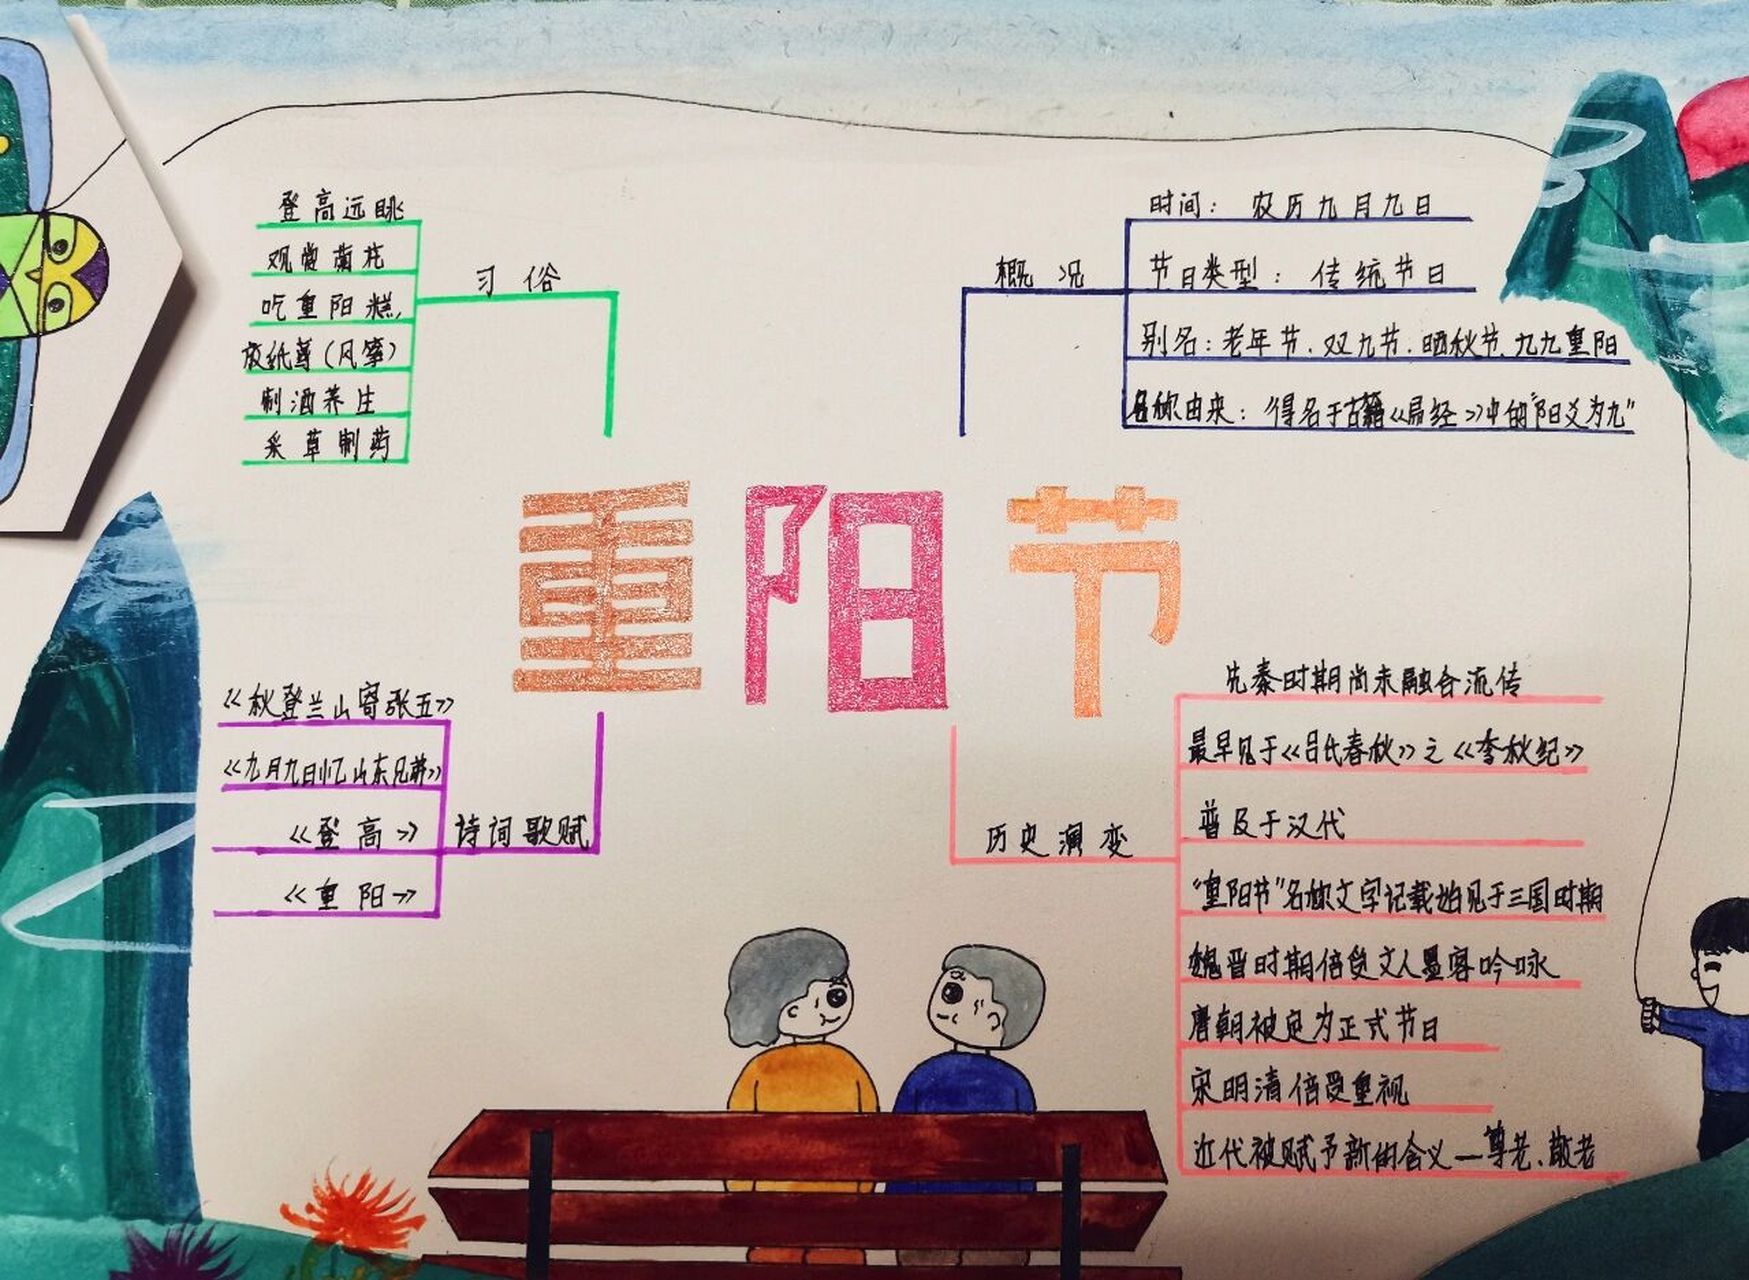 登高远眺
观赏菊花
吃重阳糕
放纸鸢(风筝)
制酒养生
采草制药
习俗
概况
时间：农历九月九日
节日类型：传统节日
别名：老年节、双九节、晒秋节、九九重阳
名称由来：得名于古籍《易经》中的“阳爻为九”
重阳节
《秋登兰山寄张五》
《九月九日忆山东兄弟》
《登高》
《重阳》
诗词歌赋
历史演变
先秦时期尚未融合流传
最早见于《吕氏春秋》之《季秋纪》
普及于汉代
“重阳节”名称文字记载始见于三国时期
魏晋时期倍受文人墨客吟咏
唐朝被定为正式节日
宋明清倍受重视
近代被赋予新的含义—尊老、敬老